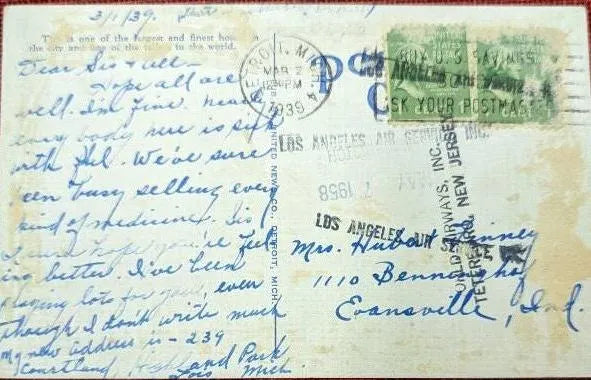 3/1/39.
This is one of the largest and finest hotels in
the city and one of the tallest in the world.
Dear Sis & all—
Hope all are
well. I'm fine. near
every body here is sick
with flu. We've sure
been busy selling every
kind of medicine. Sis I
sure hope you're feel-
ing better. I've been
praying lots for you even
though I don't write much
My new address is - 239
Courtland, Highland Park
Lois Mich.
UNITED NEWS CO., DETROIT, MICH.
DETROIT, MICH. 4
MAR 2
PM
1939
BUY U.S. SAVINGS
ASK YOUR POSTMASTER
LOS ANGELES AIR SERVICE, INC.
MAY
7 1958
LOS ANGELES AIR
WORLD AIRWAYS, INC.
TETERBORO, NEW JERSEY
PO
C
Mrs. Hubert
1110
Evansville, Ind.